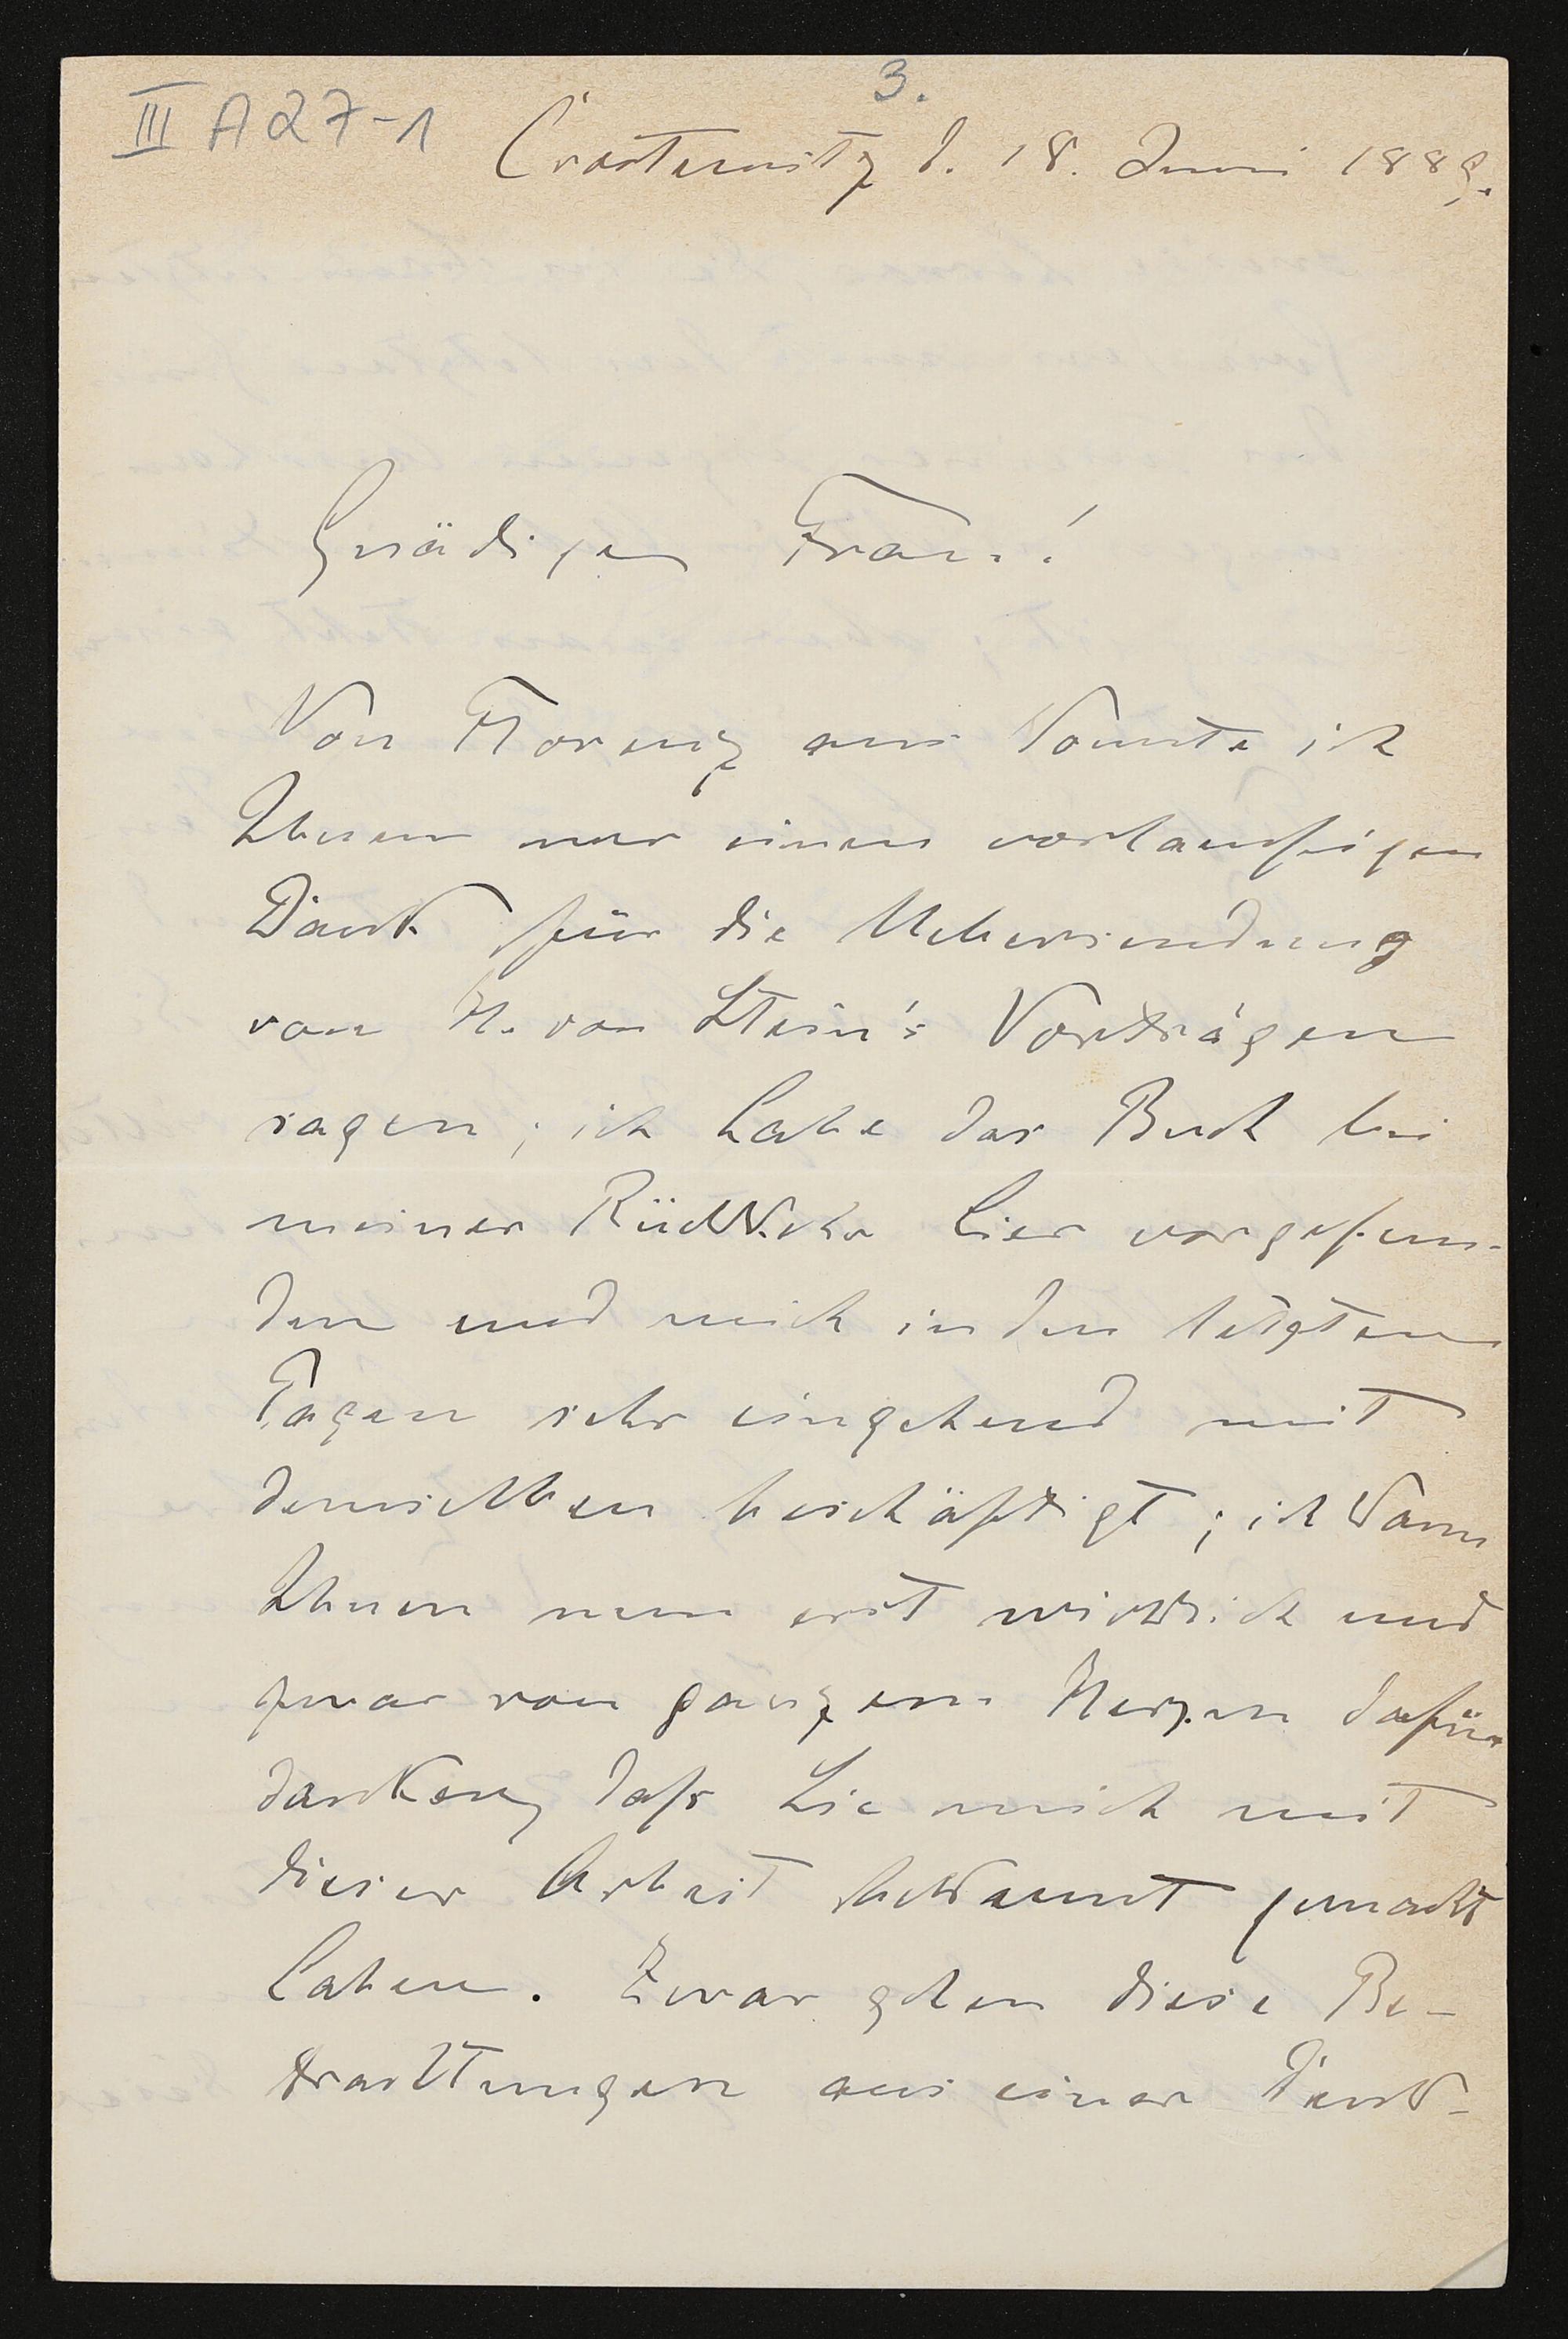 3.
III A27-1
Crostewitz d. 18. Juni 1889.
Gnädige Frau!
Von Florenz aus konnte ich
Ihnen nur einen vorlaeufigen
Dank für die Uebersendung
von H. von Stein's Vorträgen
sagen; ich habe das Buch bei
meiner Rückkehr hier vorgefun-
den und mich in den letzten
Tagen sehr eingehend mit
demselben beschäftigt; ich kann
Ihnen nun erst wirklich und
zwar von ganzem Herzen dafür
danken, dass Sie mich mit
dieser Arbeit bekannt gemacht
haben. Zwar gehen diese Be-
trachtungen aus einer Denk-